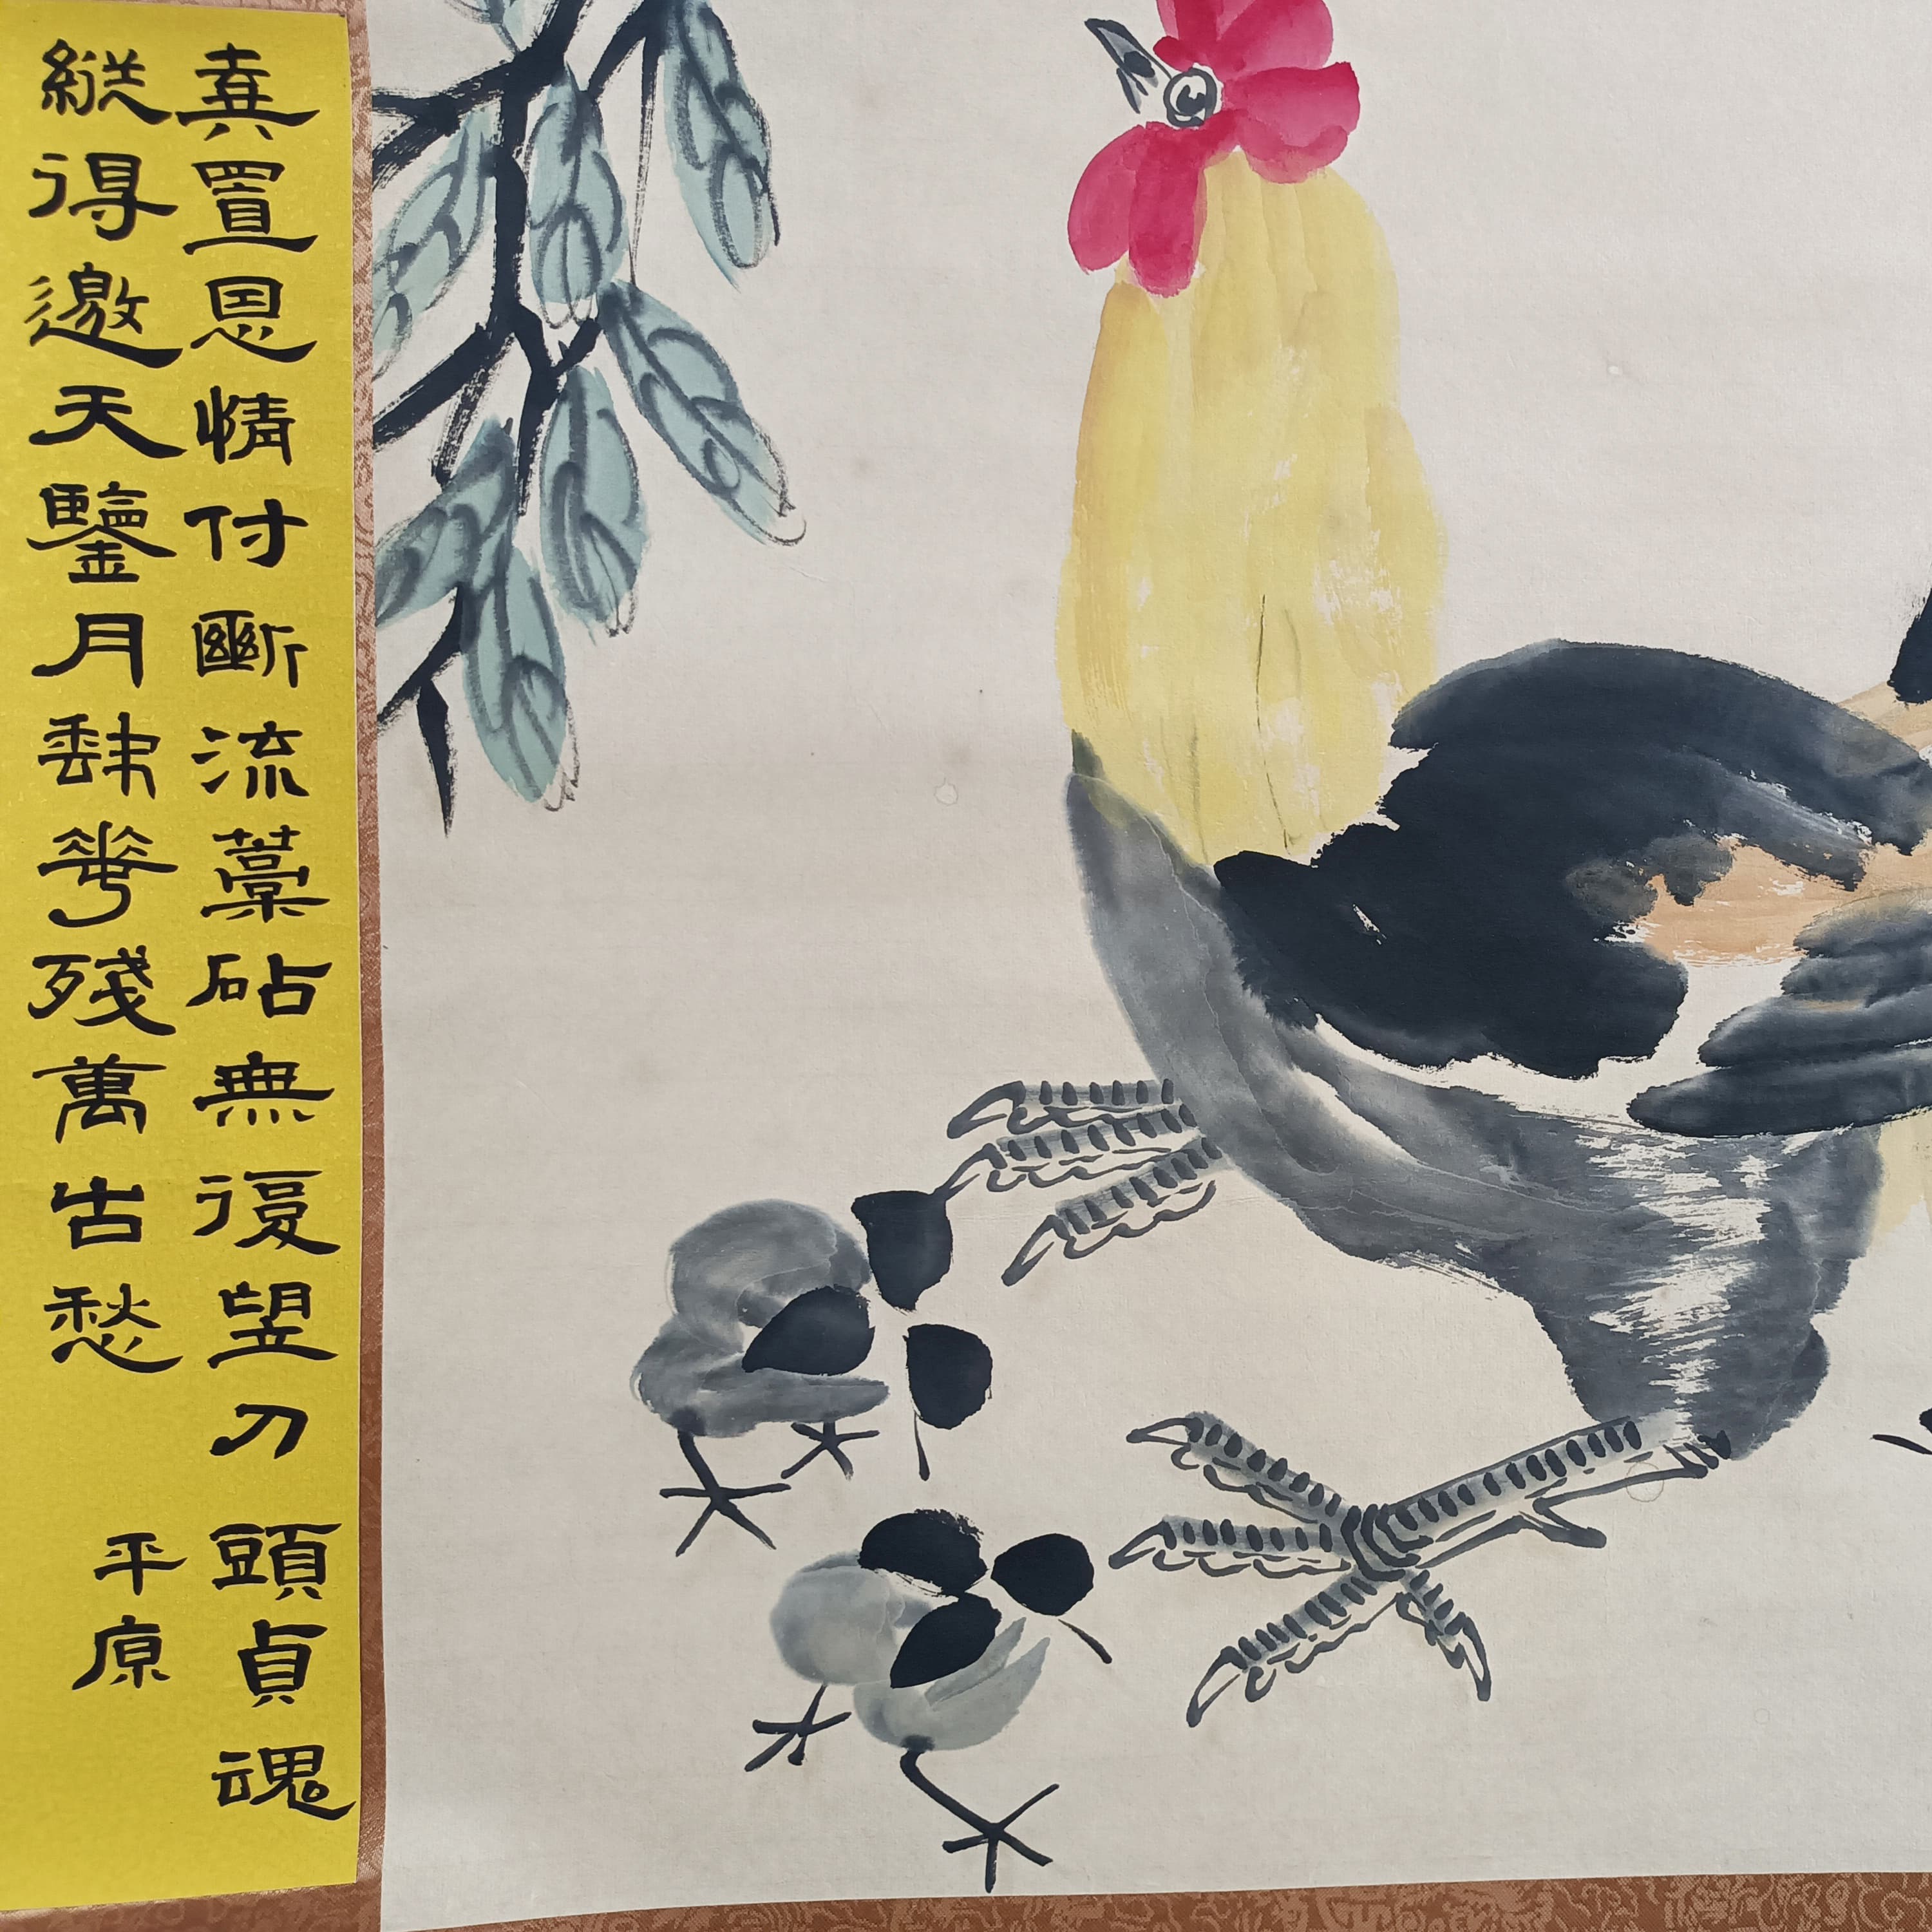 真置恩情付斷流藁砧無復望刀頭貞魂
縱得邀天鑒月肆華殘萬古愁
平原